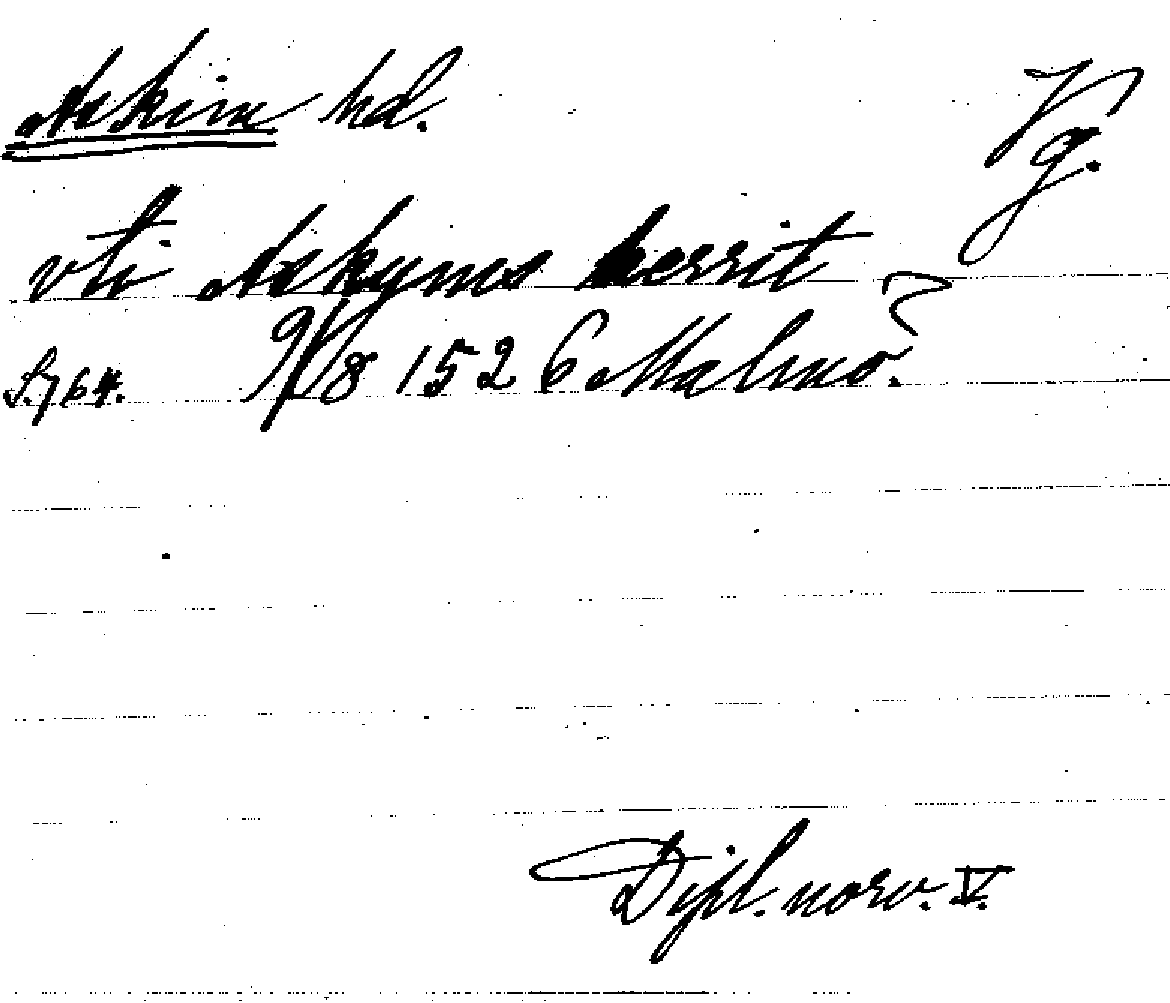 Askim hd. Vg.
vti Askyms herrit
S.764. 9/8 1526 Malmö.
Dipl. norv. V.